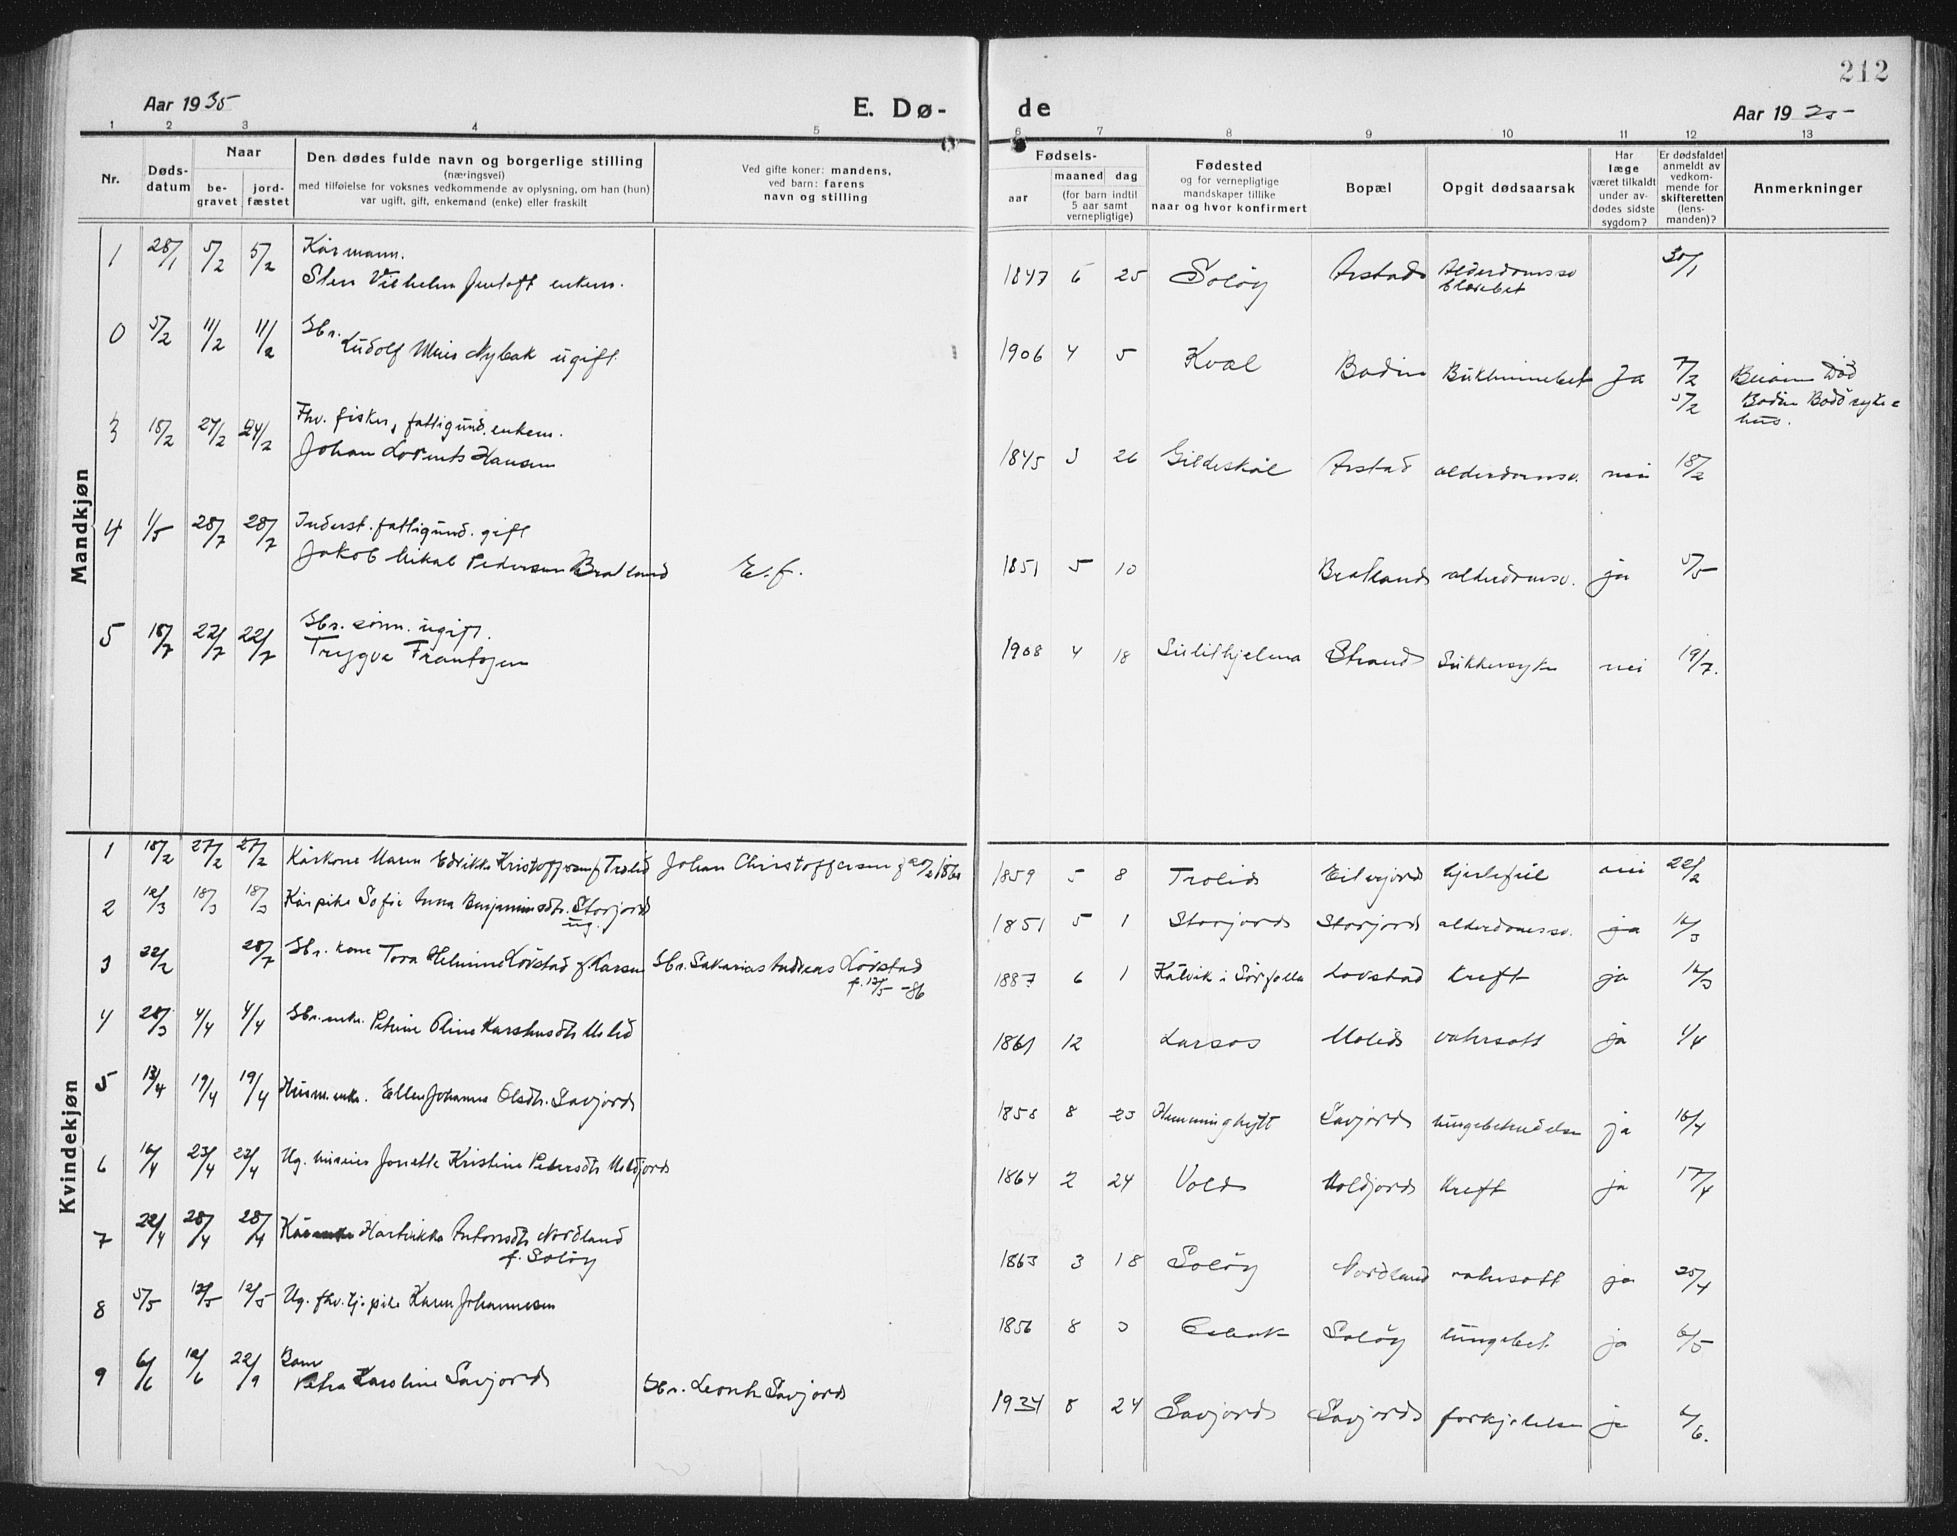 212
Aar 1935
E. Dø-
de
Aar 19
1 2 3 4 5 6 7 8 9 10 11 12 13
Nr.
Døds-
datum
Naar
be-
gravet
jord-
fæstet
Den dødes fulde navn og borgerlige stilling
(næringsvei)
med tilføielse for voksnes vedkommende av oplysning, om han (hun)
var ugift, gift, enkemand (enke) eller fraskilt
Ved gifte koner: mandens,
ved barn: farens
navn og stilling
Fødsels-
aar
maaned dag
(for barn indtil
5 aar samt
vernepligtige)
Fødested
og for vernepligtige
mandskaper tillike
naar og hvor konfirmert
Bopæl
Opgit dødsaarsak
Har
læge
været tilkaldt
under av-
dødes sidste
sygdom?
Er dødsfaldet
anmeldt av
vedkom-
mende for
skifteretten
(lens-
manden)?
Anmerkninger
Mandkjøn
1 28/1 5/2 5/2 Kårmann.
Sten Vilhelm Jentoft enkem.
1847 6 25 Soløy Arstad Alderdomssv 30/1
0 5/2 11/2 11/2 Gbr.
Ludolf Nybak ugift
1906 4 5 Kval Bodin Ja 7/2 Beiarn Død
5/2 Bodin Bodø syke=
hus.
3 18/2 24/2 24/2 Fhv. fisker, fattigund. enkem.
Johan Lorents Hansen
1845 3 26 Gildeskål Arstad alderdomssv. nei 18/2
4 1/5 28/7 28/7 Inderst. fattigund. gift
Jakob Mikal Pedersen Bratland E. f.
1851 5 10 Bratland alderdomsv. ja 5/5
5 18/7 22/7 22/7 Gbr. sønn. ugift.
Trygve Frantzen
1908 4 18 Sulithjelma Strand Sukkersyke nei 19/7.
Kvindekjøn
1 18/2 27/2 27/2 Kårkone Maren Edrikke Kristoffersen f Trolid Johan Christoffersen f 20/2 1861
1859 5 8 Trolid Eiterjord hjertefeil nei 22/2
2 12/3 18/3 18/3 Kårpike Sofie Anna Benjaminsdtr. Storjord
ug.
1851 5 1 Storjord Storjord alderdomssv. ja 16/3
3 22/2 28/7 Gbr. kone Tora Helmine Løvstad f Larsen Gbr. Sakarias Andreas Løvstad
f. 12/5 -86
1887 6 1 Kålvik i Sørfolla Lovstad Kreft ja 16/3
4 28/3 4/4 4/4 Gbr. enke. Petrine Oline Molid
1861 12 Larsos Molid vatersott ja 1/4
5 13/4 19/4 19/4 Husm. enke. Ellen Johanna Olsdtr. Savjord
1858 8 23 Savjord lungebetendelse ja 16/4
6 16/4 23/4 23/4 Ug. Jonette Kristine Petersdtr Moldjord
1864 2 24 Vold Moldjord Kreft ja 17/4
7 22/4 28/4 28/4 Hartvikke Antonsdtr Nordland
f. Soløy
1863 3 18 Soløy Nordland vatersott ja 25/4
8 5/5 12/5 12/5 Ug. fhv. tj. pike Karen Johannesen
1856 8 3 Soløy lungebet. ja 6/5
9 6/6 12/6 22/9 Barn
Petra Karoline Savjord Gbr. Leonh Savjord
1934 8 24 Savjord Savjord forkjølelse ja 6/6.